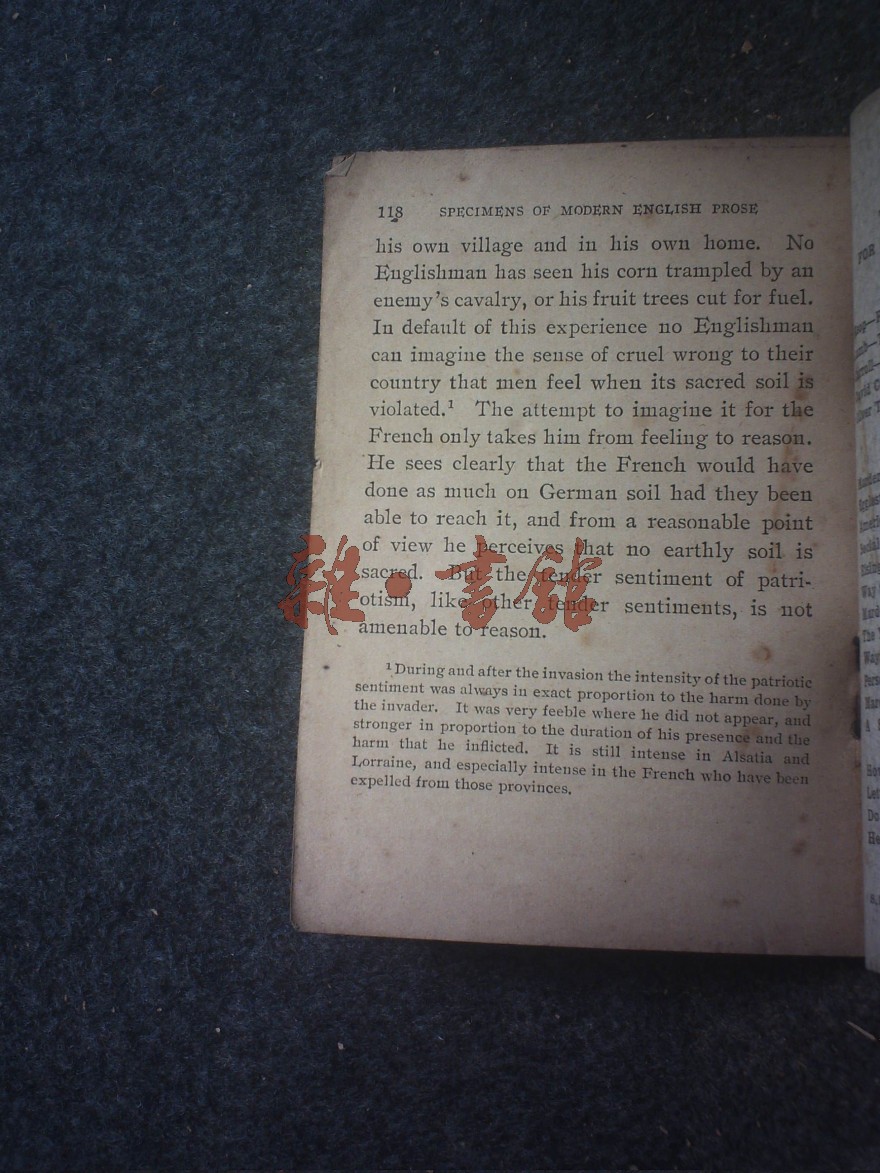 118 SPECIMENS OF MODERN ENGLISH PROSE
his own village and in his own home. No
Englishman has seen his corn trampled by an
enemy's cavalry, or his fruit trees cut for fuel.
In default of this experience no Englishman
can imagine the sense of cruel wrong to their
country that men feel when its sacred soil is
violated.¹ The attempt to imagine it for the
French only takes him from feeling to reason.
He sees clearly that the French would have
done as much on German soil had they been
able to reach it, and from a reasonable point
of view he perceives that no earthly soil is
sacred. But the tender sentiment of patri-
otism, like other tender sentiments, is not
amenable to reason.
¹ During and after the invasion the intensity of the patriotic
sentiment was always in exact proportion to the harm done by
the invader. It was very feeble where he did not appear, and
stronger in proportion to the duration of his presence and the
harm that he inflicted. It is still intense in Alsatia and
Lorraine, and especially intense in the French who have been
expelled from those provinces.
雜·書館
FOR